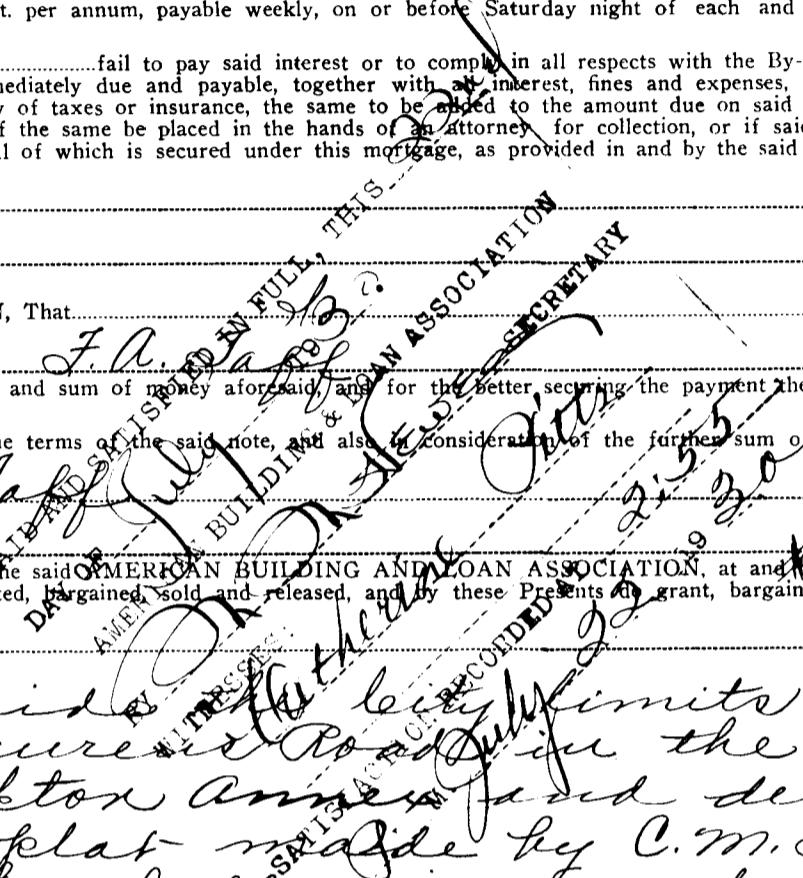 t. per annum, payable weekly, on or before Saturday night of each and
fail to pay said interest or to comply in all respects with the By-
mediately due and payable, together with all interest, fines and expenses,
y of taxes or insurance, the same to be added to the amount due on said
f the same be placed in the hands of an attorney for collection, or if said
l of which is secured under this mortgage, as provided in and by the said
N, That
F. A.
and sum of money aforesaid, and for the better securing the payment the
he terms of the said note, and also in consideration of the further sum o
he said AMERICAN BUILDING AND LOAN ASSOCIATION, at and
ted, bargained, sold and released, and by these Presents do grant, bargain
the city limits
Road in the
Annex and de
plat made by C. M.
PAID AND SATISFIED IN FULL, THIS 22nd
DAY OF July 193
AMERICAN BUILDING & LOAN ASSOCIATION
BY SECRETARY
WITNESSES:
Katherine Pitts
SATISFACTION RECORDED AT 2:55
M July 22 1930